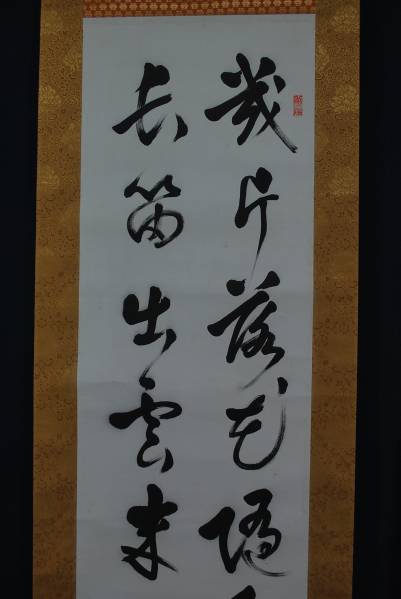 幾片落花隨
長笛出雲来